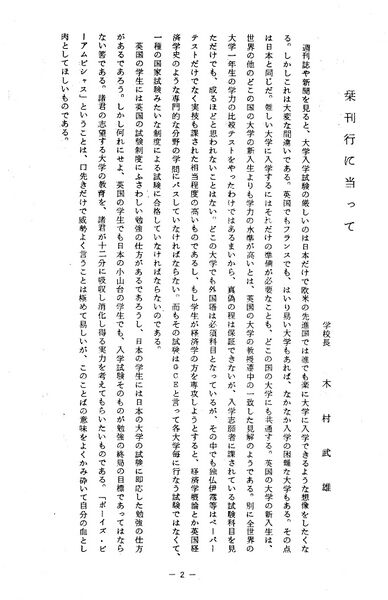 栞刊行に当って
学校長　木村武雄
週刊誌や新聞を見ると、大学入学試験の厳しいのは日本だけで欧米の先進国では誰でも楽に大学に入学できるような想像をしたくな
る。しかしこれは大変な間違いである。英国でもフランスでも、はいり易い大学もあれば、なかなか入学の困難な大学もある。その点
は日本と同じだ。難しい大学に入学するにはそれだけの準備が必要なことも、どこの国の大学にも共通する。英国の大学の新入生は、
世界の他のどこの国の大学の新入生よりも学力の水準が高いとは、英国の大学の教授連中の一致した見解のようである。別に全世界の
大学一年生の学力の比較テストをやったわけではあるまいから、真偽の程は保証できないが、入学志願者に課されている試験科目を見
ただけでも、成るほどと思われないことはない。どこの大学でも外国語は必須科目となっているが、その中でも独仏伊露等はペーパー
テストだけでなく実技も課された相当程度の高いものであるし、もし学生が経済学の方を専攻しようとすると、経済学概論とか英国経
済学史のような専門的な分野の学問にパスしていなければならない。而もその試験はＧＣＥと言って各大学毎に行なう試験ではなくて、
一種の国家試験みたいな制度による試験に合格していなければならないのである。
英国の学生には英国の試験制度にふさわしい勉強の仕方があるであろうし、日本の学生には日本の大学の試験に即応した勉強の仕方
があるであろう。しかし何れにせよ、英国の学生でも日本の小山台の学生でも、入学試験そのものが勉強の終局の目標であってはなら
ない筈である。諸君の志望する大学の教育を、諸君が十二分に吸収し消化し得る実力を考えてもらいたいものである。「ボーイズ・ビ
ーアムビシャス」ということは、口先きだけで威勢よく言うことは極めて易しいが、このことばの意味をよくかみ砕いて自分の血とし
肉としてほしいものである。
— 2 —